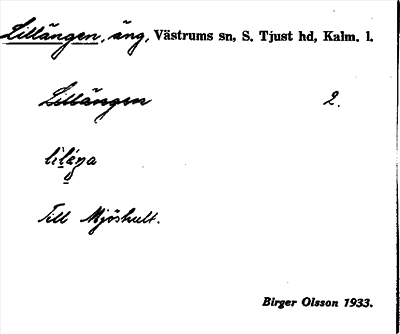 Lillängen, äng, Västrums sn, S. Tjust hd, Kalm. l.
Lillängen 2.
Till Mjöshult.
Birger Olsson 1933.